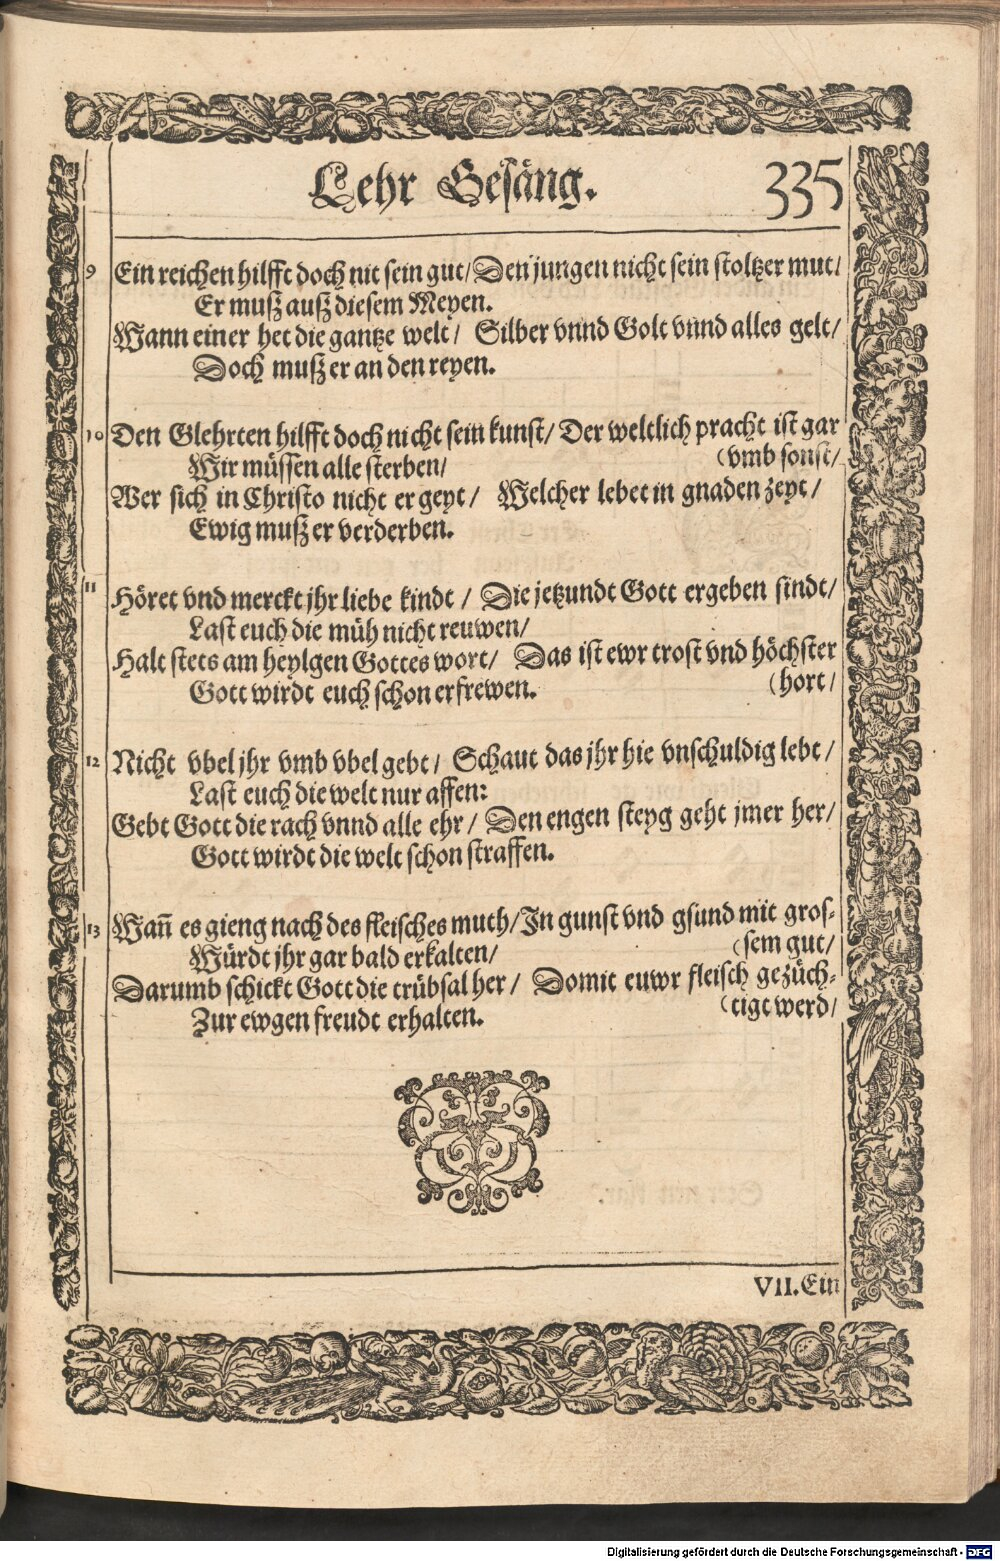 Lehr Gesäng. 335
9 Ein reichen hilfft doch nit sein gut/ Den jungen nicht sein stoltzer mut/
Er muß auß diesem Meyen.
Wann einer het die gantze welt/ Silber vnnd Golt vnnd alles gelt/
Doch muß er an den reyen.
10 Den Glehrten hilfft doch nicht sein kunst/ Der weltlich pracht ist gar
Wir müssen alle sterben/ (vmb sonst/
Wer sich in Christo nicht ergeyt/ Welcher lebet in gnaden zeyt/
Ewig muß er verderben.
11 Höret vnd merckt jhr liebe kindt/ Die jetzundt Gott ergeben sindt/
Last euch die müh nicht reuwen/
Halt stets am heylgen Gottes wort/ Das ist ewr trost vnd höchster
Gott wirdt euch schon erfrewen. (hort/
12 Nicht vbel jhr vmb vbel gebt/ Schaut das jhr hie vnschuldig lebt/
Last euch die welt nur affen:
Gebt Gott die rach vnnd alle ehr/ Den engen steyg geht jmer her/
Gott wirdt die welt schon straffen.
13 Wañ es gieng nach des fleisches muth/ In gunst vnd gsund mit gros-
Würdt jhr gar bald erkalten/ (sem gut/
Darumb schickt Gott die trübsal her/ Domit euwr fleisch gezüch-
Zur ewgen freudt erhalten. (tigt werd/
VII. Ein
Digitalisierung gefördert durch die Deutsche Forschungsgemeinschaft - DFG